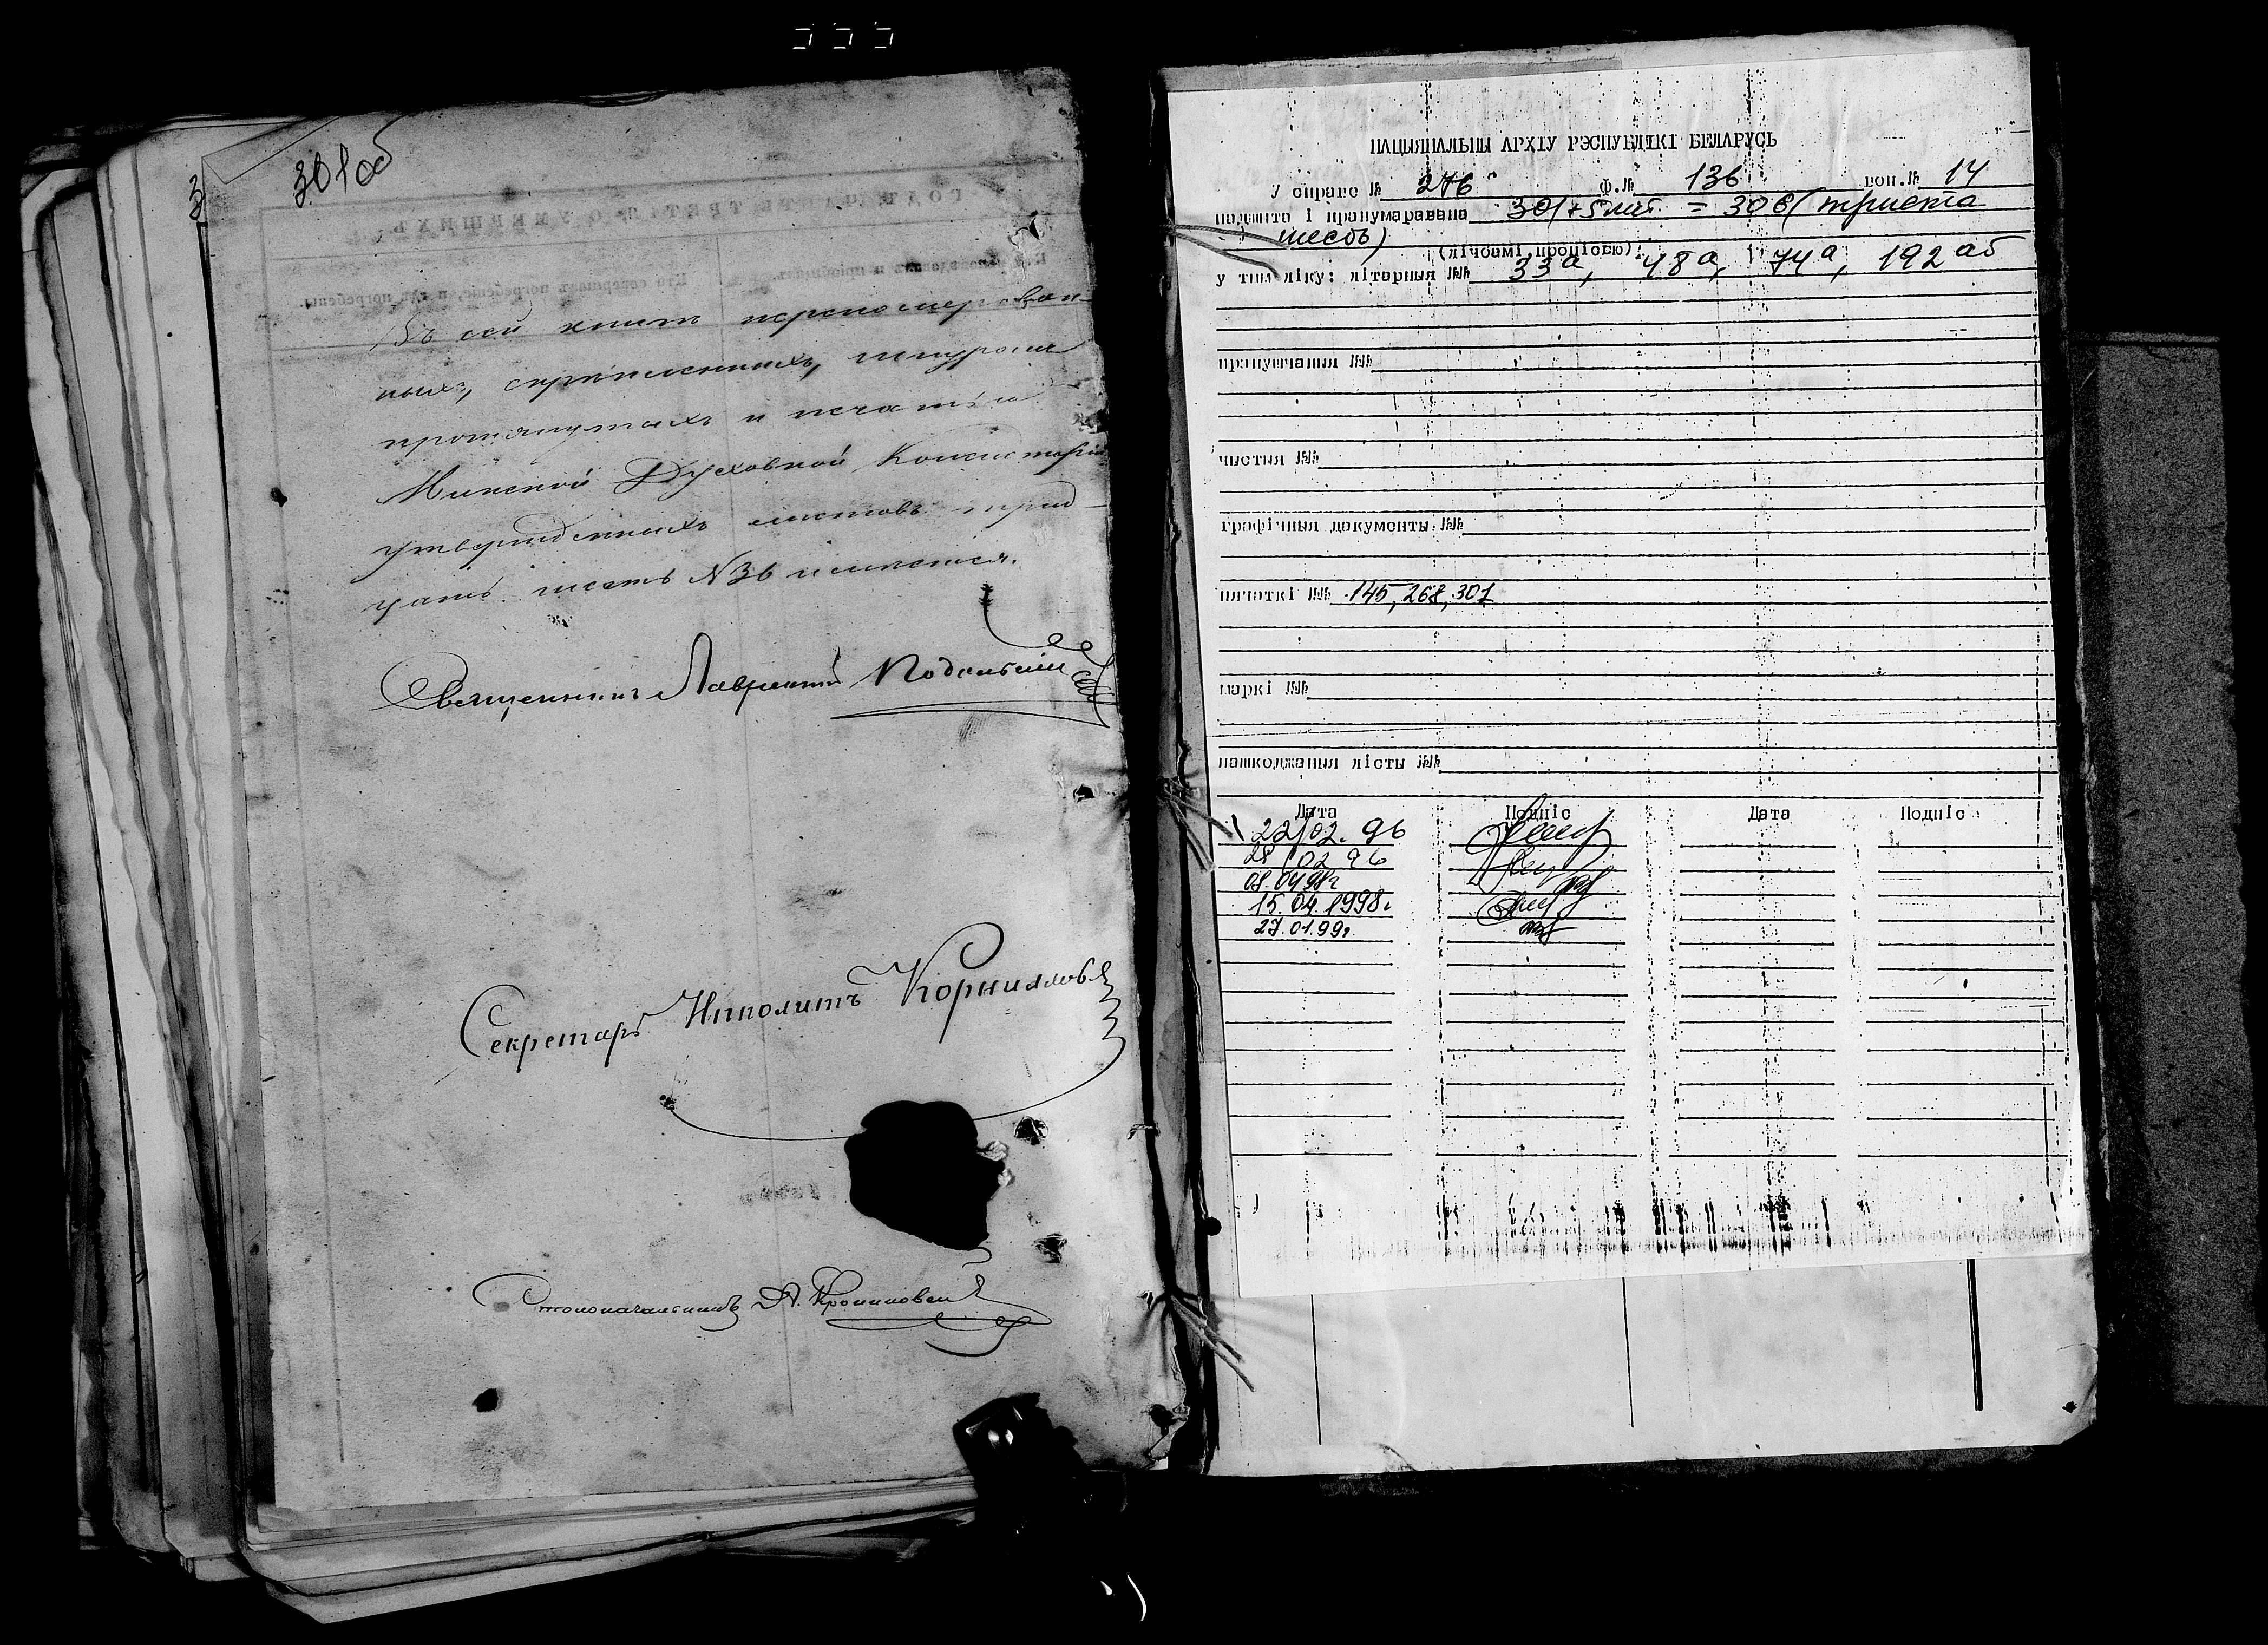 301об
Въ сей книгѣ перенумерован-
ныхъ, скрѣпленныхъ, шнуромъ
протянутыхъ и печатью
Минской Духовной Консисторіи
утвержденныхъ листовъ трид-
цать шесть №36 имѣется.
Священникъ Лаврентій Подольскій
Секретарь Ипполитъ Корниловъ
Столоначальникъ
НАЦЫЯНАЛЬНЫ АРХІЎ РЭСПУБЛІКІ БЕЛАРУСЬ
У справе № 276 Ф.№ 136 воп.№ 14
падшыта і пранумаравана 301+5лит. = 306 (триста
шесть)
(лічбамі, пропісью)
у тым ліку: літарныя №№ 33а, 48а, 74а, 192аб
прапушчаныя №№
чыстыя №№
графічныя дакументы №№
пячаткі №№ 145, 268, 301
маркі №№
пашкоджаныя лісты №№
Дата Подпіс Дата Подпіс
22/02.96
28/02 96
08.04 98г
15.04.1998г
27.01.99г